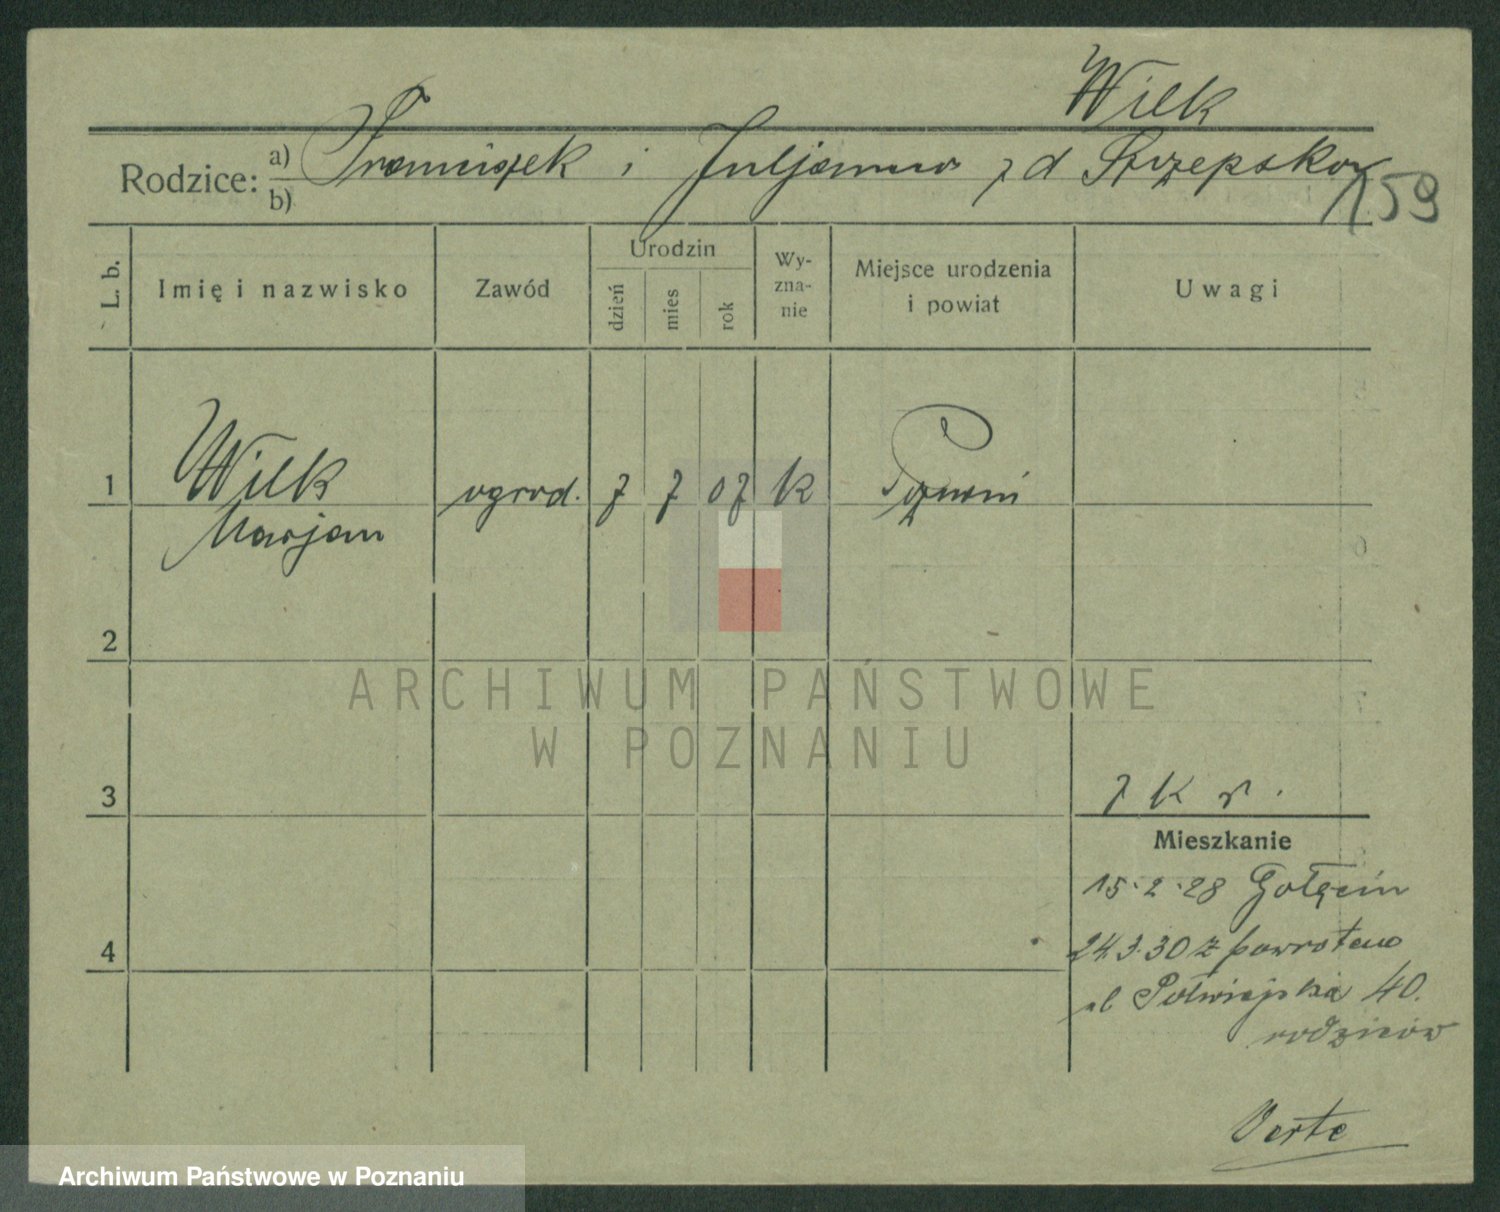 Wilk
Rodzice: a) Franciszek i Juljanna z d Strzępska
b)
159
L. b. Imię i nazwisko Zawód Urodzin dzień mies rok Wy-zna-nie Miejsce urodzenia i powiat Uwagi
1 Wilk ogrod. 7 7 07 k Poznań
Marjan
2
ARCHIWUM PAŃSTWOWE
W POZNANIU
3
Mieszkanie
15.2.28 Gołęcin
4
24.3.30 z powrotem
ul Półwiejska 40.
rodziców
Verte
Archiwum Państwowe w Poznaniu